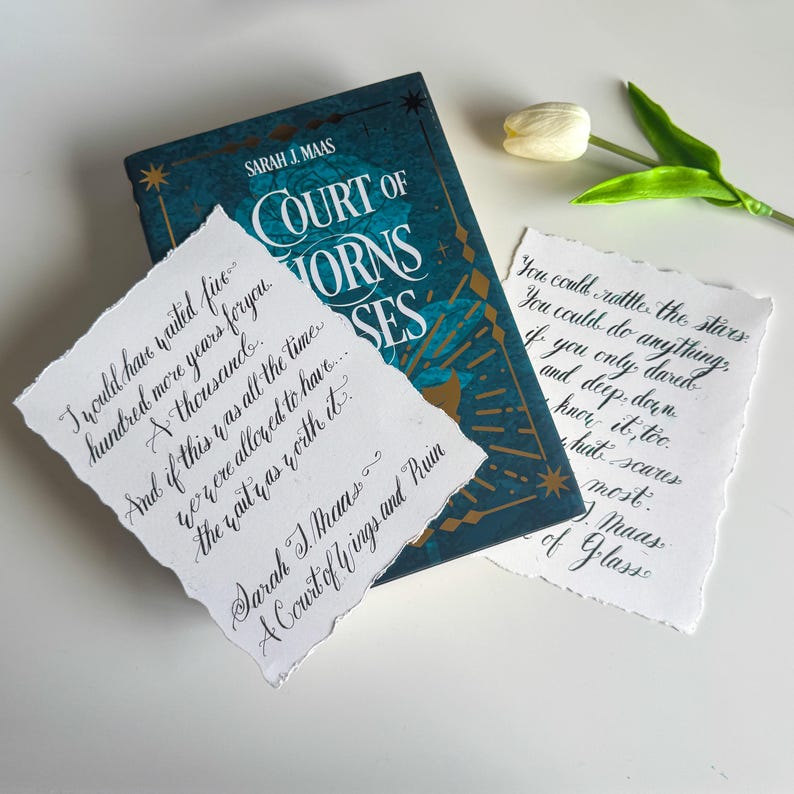 SARAH J. MAAS
COURT OF
HORNS
SES
I would have waited five
hundred more years for you.
A thousand.
And if this was all the time
we were allowed to have...
the wait was worth it.
Sarah J. Maas
A Court of Wings and Ruin
You could rattle the stars.
You could do anything,
if you only dared.
and deep down
know it, too.
what scares
most.
J. Maas
of Glass